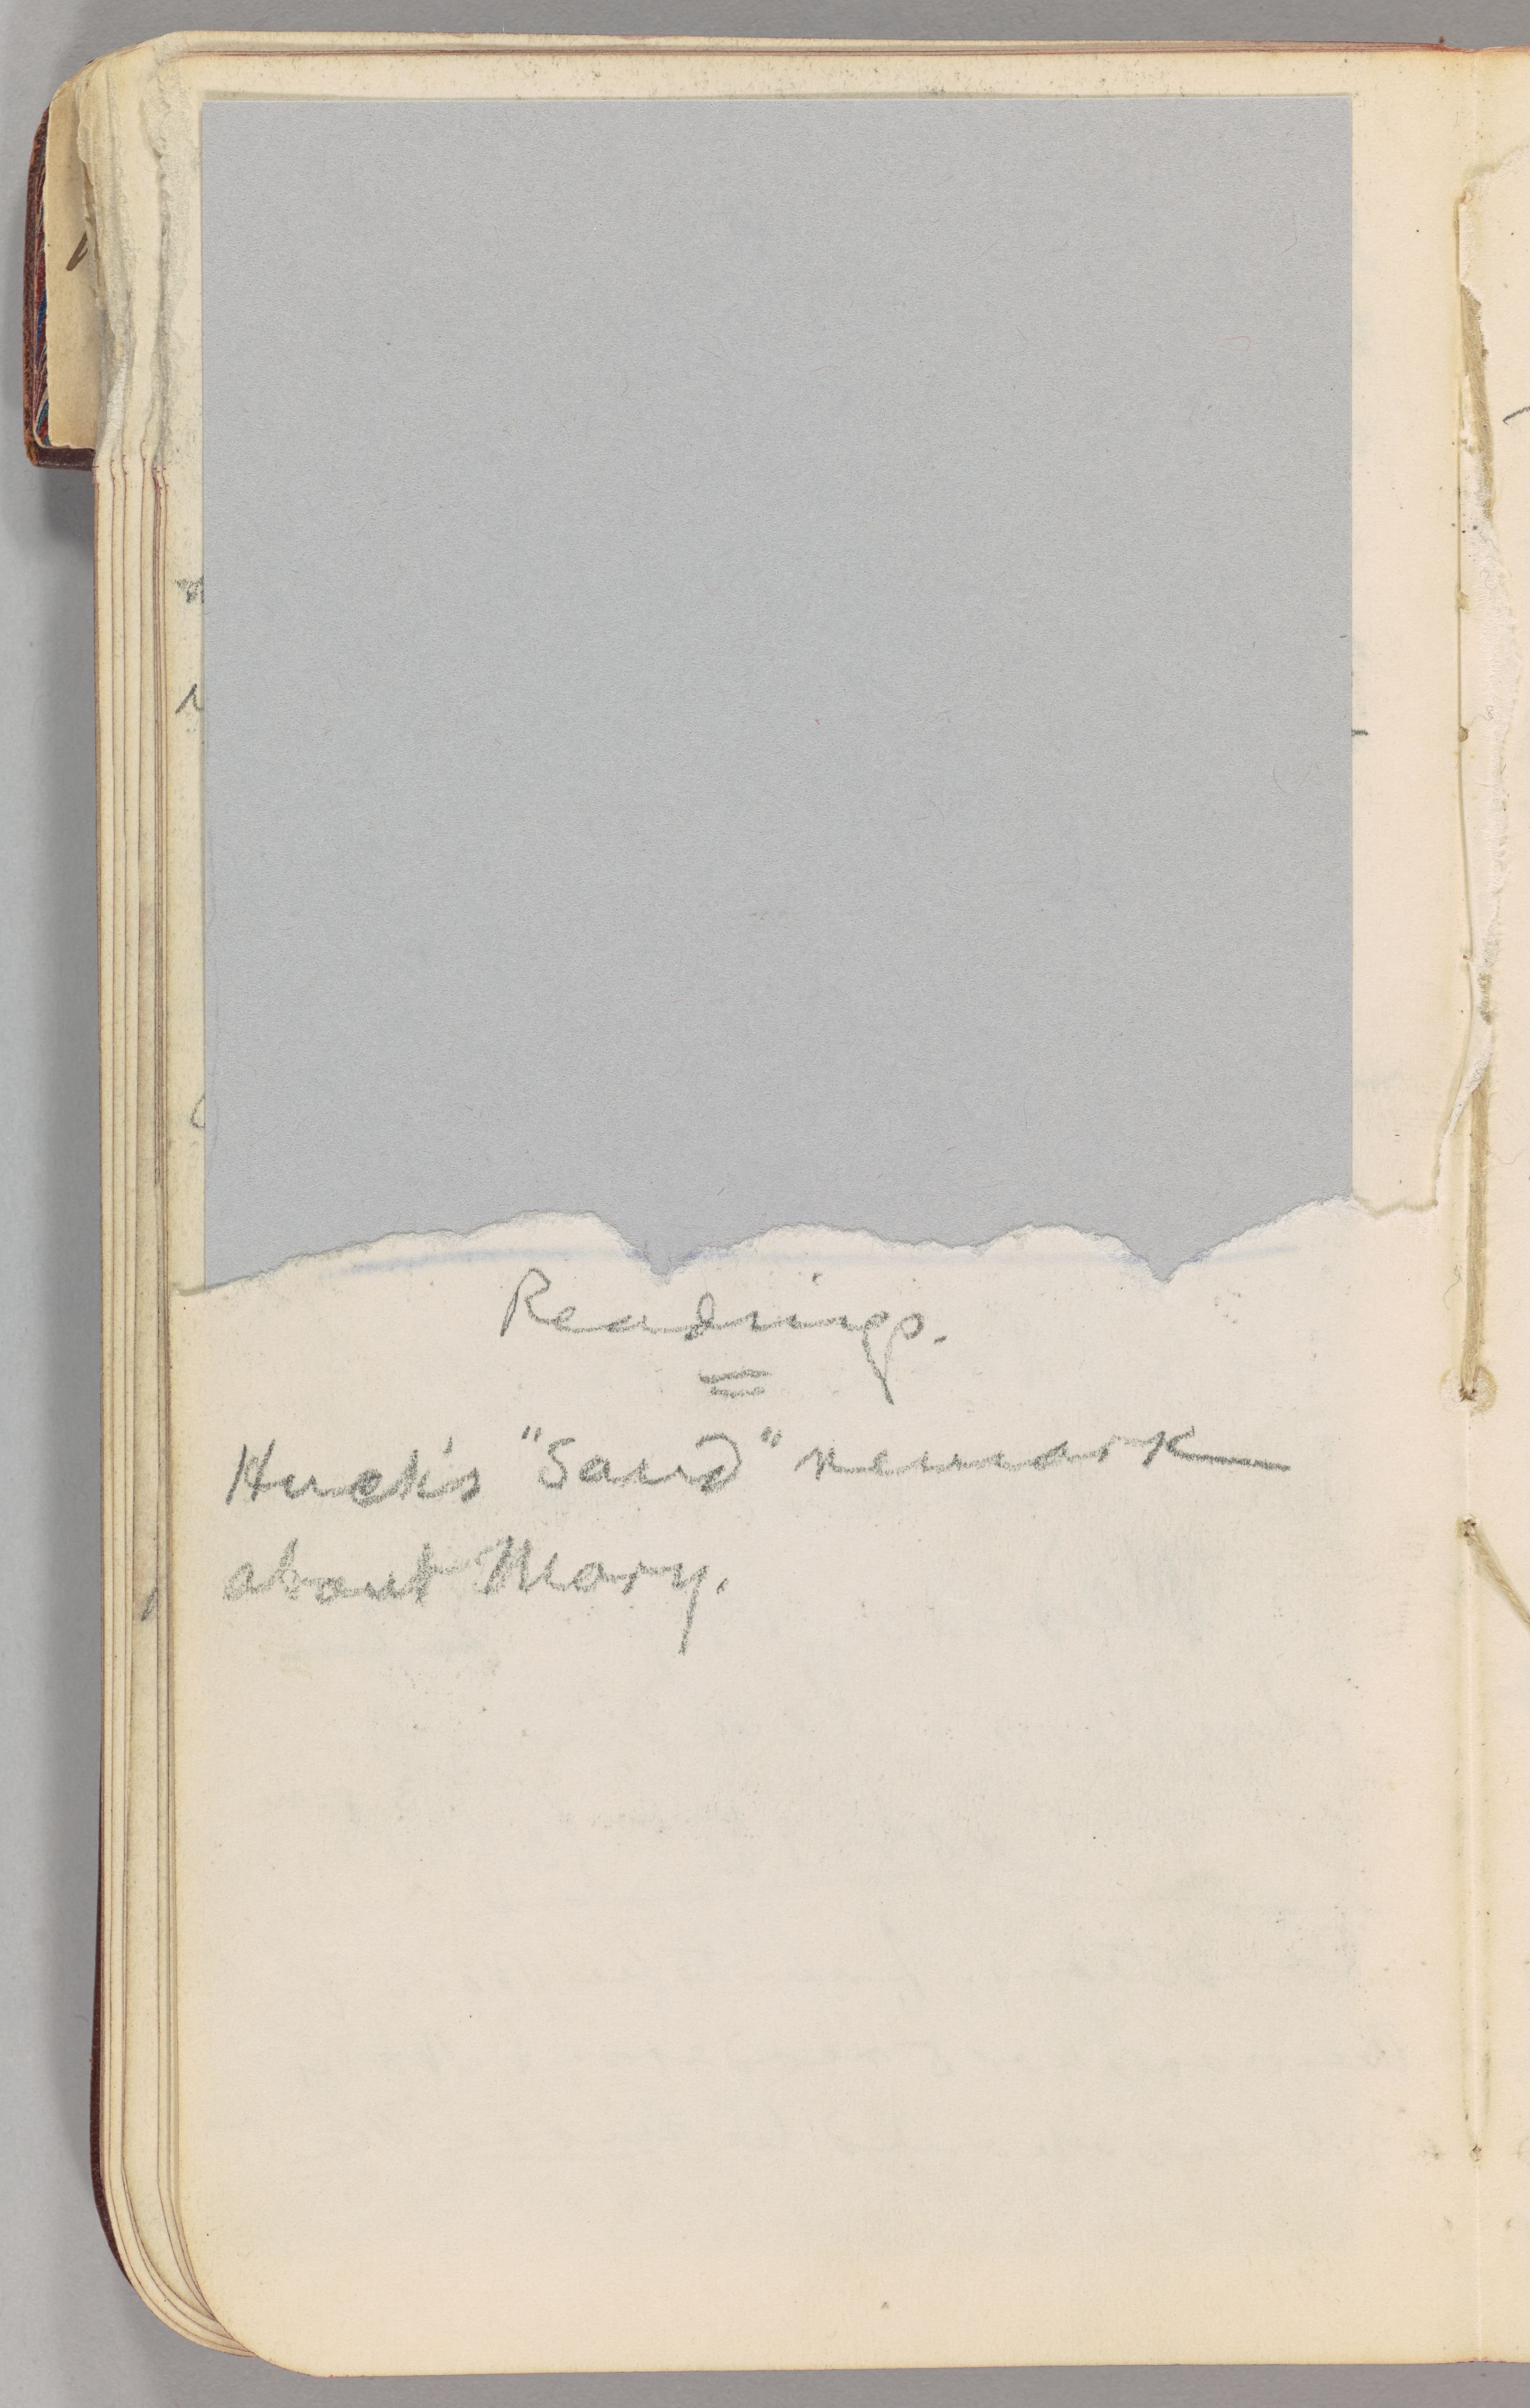 Readings.
Huck's "sand" remark
about Mary.